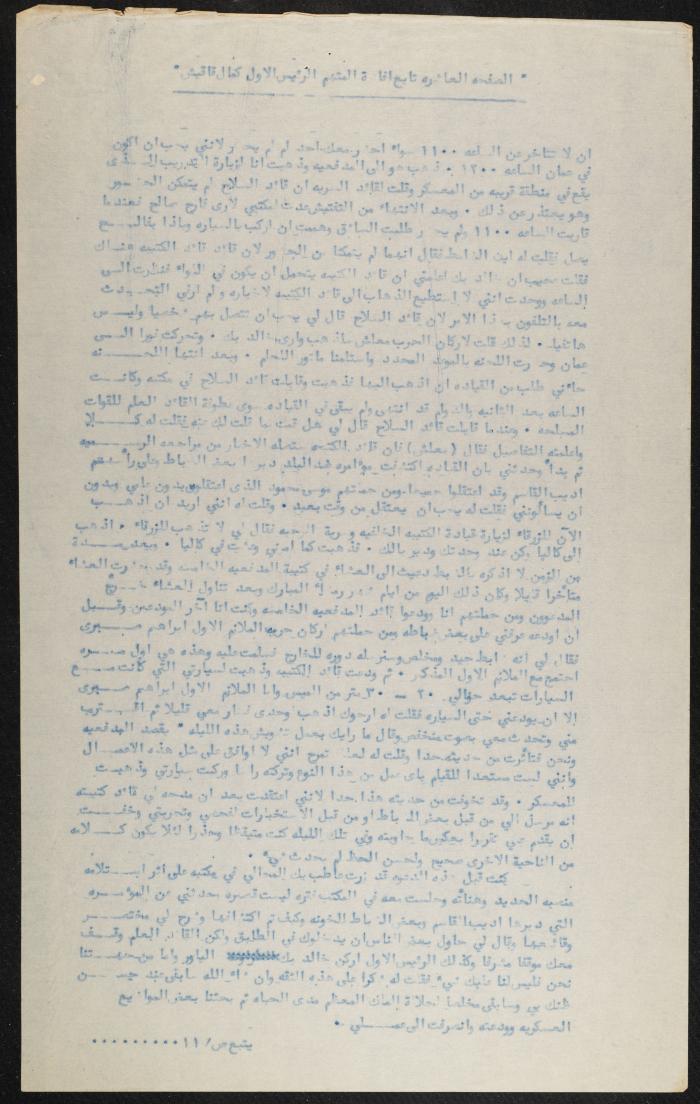 " الصفحه العاشره تابع افادة المتهم الرئيس الاول كمال قاقيش "
ان لا تتاخر عن الساعه ١١٠٠ سواء احضر معك احد ام لم يحضر لانني يجب ان اكون
في عمان الساعه ١٢٠٠ . فذهب هو الى المدفعيه وذهبت انا لزيارة التدريب الذى
يقع في منطقة قريبه من المعسكر وقلت لقائد السريه ان قائد السلاح لم يتمكن الحضور
وهو يعتذر عن ذلك . وبعد الانتهاء من التفتيش عدت لمكتبي لارى فارح صالح فعندما
قاربت الساعه ١١٠٠ ولم يحضر طلبت السائق وهممت ان اركب بالسياره واذا بفارح
يصل فقلت له اين الضابط فقال انهما لم يتمكنا من الحضور لان قائد الكتيبه هناك
فقلت عجيب ان خالد بك اعلمني ان قائد الكتيبه يحتمل ان يكون في اللواء فنظرت الى
الساعه ووجدت انني لا استطيع الذهاب الى قائد الكتيبه لاخباره ولم ارني التحدث
معه بالتلفون بهذا الامر لان قائد السلاح قال لي يجب ان تتصل بهم شخصيا وليس
هاتفيا . لذلك قلت لاركان الحرب معلش سأذهب وارى خالد بك . وتحركت فورا الى
عمان وحضرت اللجنه بالموعد المحدد واستلمنا مأمور اللحام . وبعد انتهاء اللجنه
جاءني طلب من القياده ان اذهب اليها فذهبت وقابلت قائد السلاح في مكتبه وكانت
الساعه بعد الثانيه والدوام قد انتهى ولم يبقى في القياده سوى عطوفة القائد العام للقوات
المسلحه . وعندما قابلت قائد السلاح قال لي هل قمت بما قلت لك عنه فقلت له كلا
واعلمته التفاصيل فقال ( معلش ) فان قائد الكتيبه ستصله الاخبار من مراجعه الرسميه
ثم بدأ وحدثني بان القياده اكتشفت مؤامره ضد البلد دبرها بعض الضباط وعلى رأسهم
اديب القاسم وقد اعتقلوا جميعا ومن جملتهم موسى محمود الذى اعتقلوه بدون علمي وبدون
ان يسألونني فقلت له يجب ان يعتقل من وقت بعيد . وقلت له انني اريد ان اذهب
الآن للزرقاء لزيارة قيادة الكتيبه الخلفيه وسرية الجبهه فقال لي لا تذهب للزرقاء . اذهب
الى كاليا وكن عند وحدتك ودبر بالك . فذهبت كما امرني وبت في كاليا . وبعد مدة
من الزمن لا اذكره بالضبط دعيت الى العشاء في كتيبة المدفعيه الخامسه وقد حضرت العشاء
متأخرا قليلا وكان ذلك اليوم من ايام شهر رمضان المبارك وبعد تناول العشاء خرج
المدعوون ومن جملتهم انا وودعوا قائد المدفعيه الخامسه وكنت انا آخر المودعين وقبل
ان اودعه عرفني على بعض ضباطه ومن جملتهم اركان حربه الملازم الاول ابراهيم صبرى
فقال لي انه ضابط جيد ومخلص وسنرسله دوره للخارج فسلمت عليه وهذه هي اول مره
اجتمع مع الملازم الاول المذكور . ثم ودعت قائد الكتيبه وذهبت لسيارتي التي كانت مع
السيارات تبعد حوالي ٢٠ ــ ٣٠ متر من الميس وابا الملازم الاول ابراهيم صبرى
الا ان يودعني حتى السياره فقلت له ارجوك اذهب لوحدى فسار معي قليلا ثم اقترب
مني وتحدث معي بصوت منخفض وقال ما رأيك بعمل تشويش هذه الليله " بقصد المدفعيه
ونحن فتأثرت من حديثه جدا وقلت له لعلك تمزح انني لا اوافق على مثل هذه الاعمال
وانني لست مستعدا للقيام باى عمل من هذا النوع وتركته رأسا وركبت سيارتي وذهبت
للمعسكر . وقد تخوفت من حديثه هذا جدا لانني اعتقدت بعد ان مدحه لي قائد كتيبته
انه مرسل الي من قبل بعض الضباط او من قبل الاستخبارات لفحصي وتجربتي وخفت
ان يقدم عني تقريرا بعكس ما جاوبته وفي تلك الليله كنت متيقظا وحذرا لئلا يكون كلامه
من الناحية الاخرى صحيح ولحسن الحظ لم يحدث شيء .
كنت قبل هذه الدعوه قد زرت عاطف بك المجالي في مكتبه على اثر استلامه
منصبه الجديد وهنأته وجلست معه في المكتب فتره ليست قصيره حدثني عن المؤامره
التي دبرها اديب القاسم وبعض الضباط الخونه وكيف تم اكتشافها وشرح لي مختصر
وقائعها وقال لي حاول بعض الناس ان يدخلوك في الطابق ولكن القائد العام وقف
معك موقفا مشرفا وكذلك الرئيس الاول اركن خالد بك الياور واما من جهتنا
نحن فليس لنا عليك شيء فقلت له شكرا على هذه الثقه وان شاء الله سابقى عند حسن
ظنك بي وسابقى مخلصا لجلالة الملك المعظم مدى الحياه ثم بحثنا بعض المواضيع
العسكريه وودعته وانصرفت الى عملي .
يتبع ص/ ١١ . . . . . . . . .